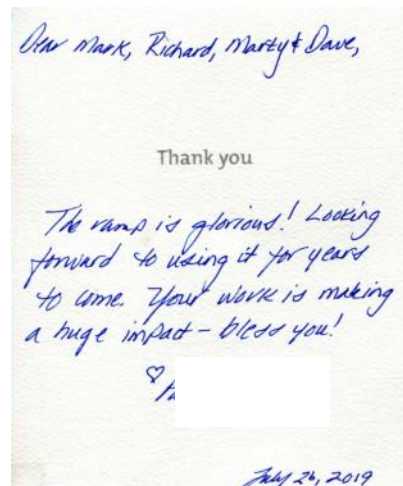 Dear Mark, Richard, Marty & Dave,
Thank you
The ramp is glorious! Looking
forward to using it for years
to come. Your work is making
a huge impact – bless you!
♡
July 26, 2019